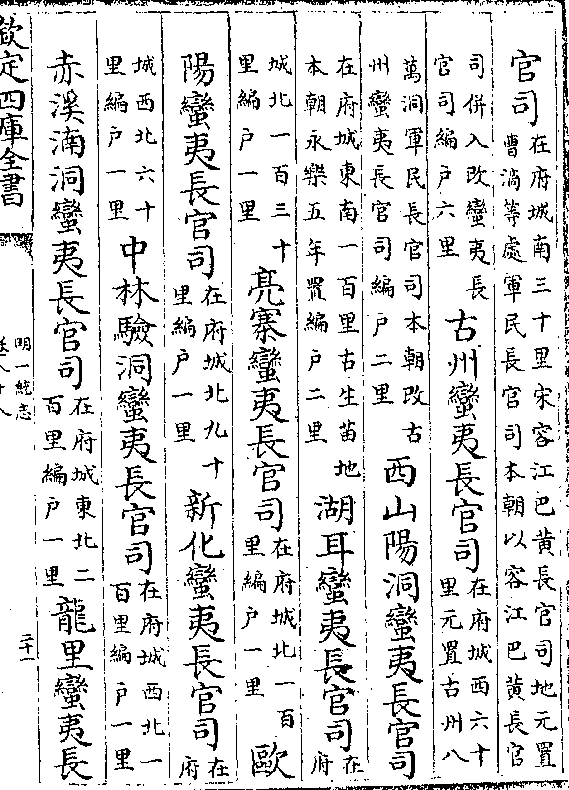 官司在府城南三十里宋容江巴黄長官司地元置曹滴等處軍民長官司本朝以容江巴黄長官
司併入改蠻夷長官司編户六里古州蠻夷長官司在府城西六十里元置古州八
萬洞軍民長官司本朝改古州蠻夷長官司編户二里西山陽洞蠻夷長官司
在府城東南一百里古生苗地本朝永樂五年置編户二里湖耳蠻夷長官司在府
城北一百三十里編户一里亮寨蠻夷長官司在府城北一百里編户一里歐
陽蠻夷長官司在府城北九十里編户一里新化蠻夷長官司在府
城西北六十里編户一里中林驗洞蠻夷長官司在府城西北一百里編户一里
赤溪湳洞蠻夷長官司在府城東北二百里編户一里龍里蠻夷長
欽定四庫全書
明一統志
卷八十八
二十一